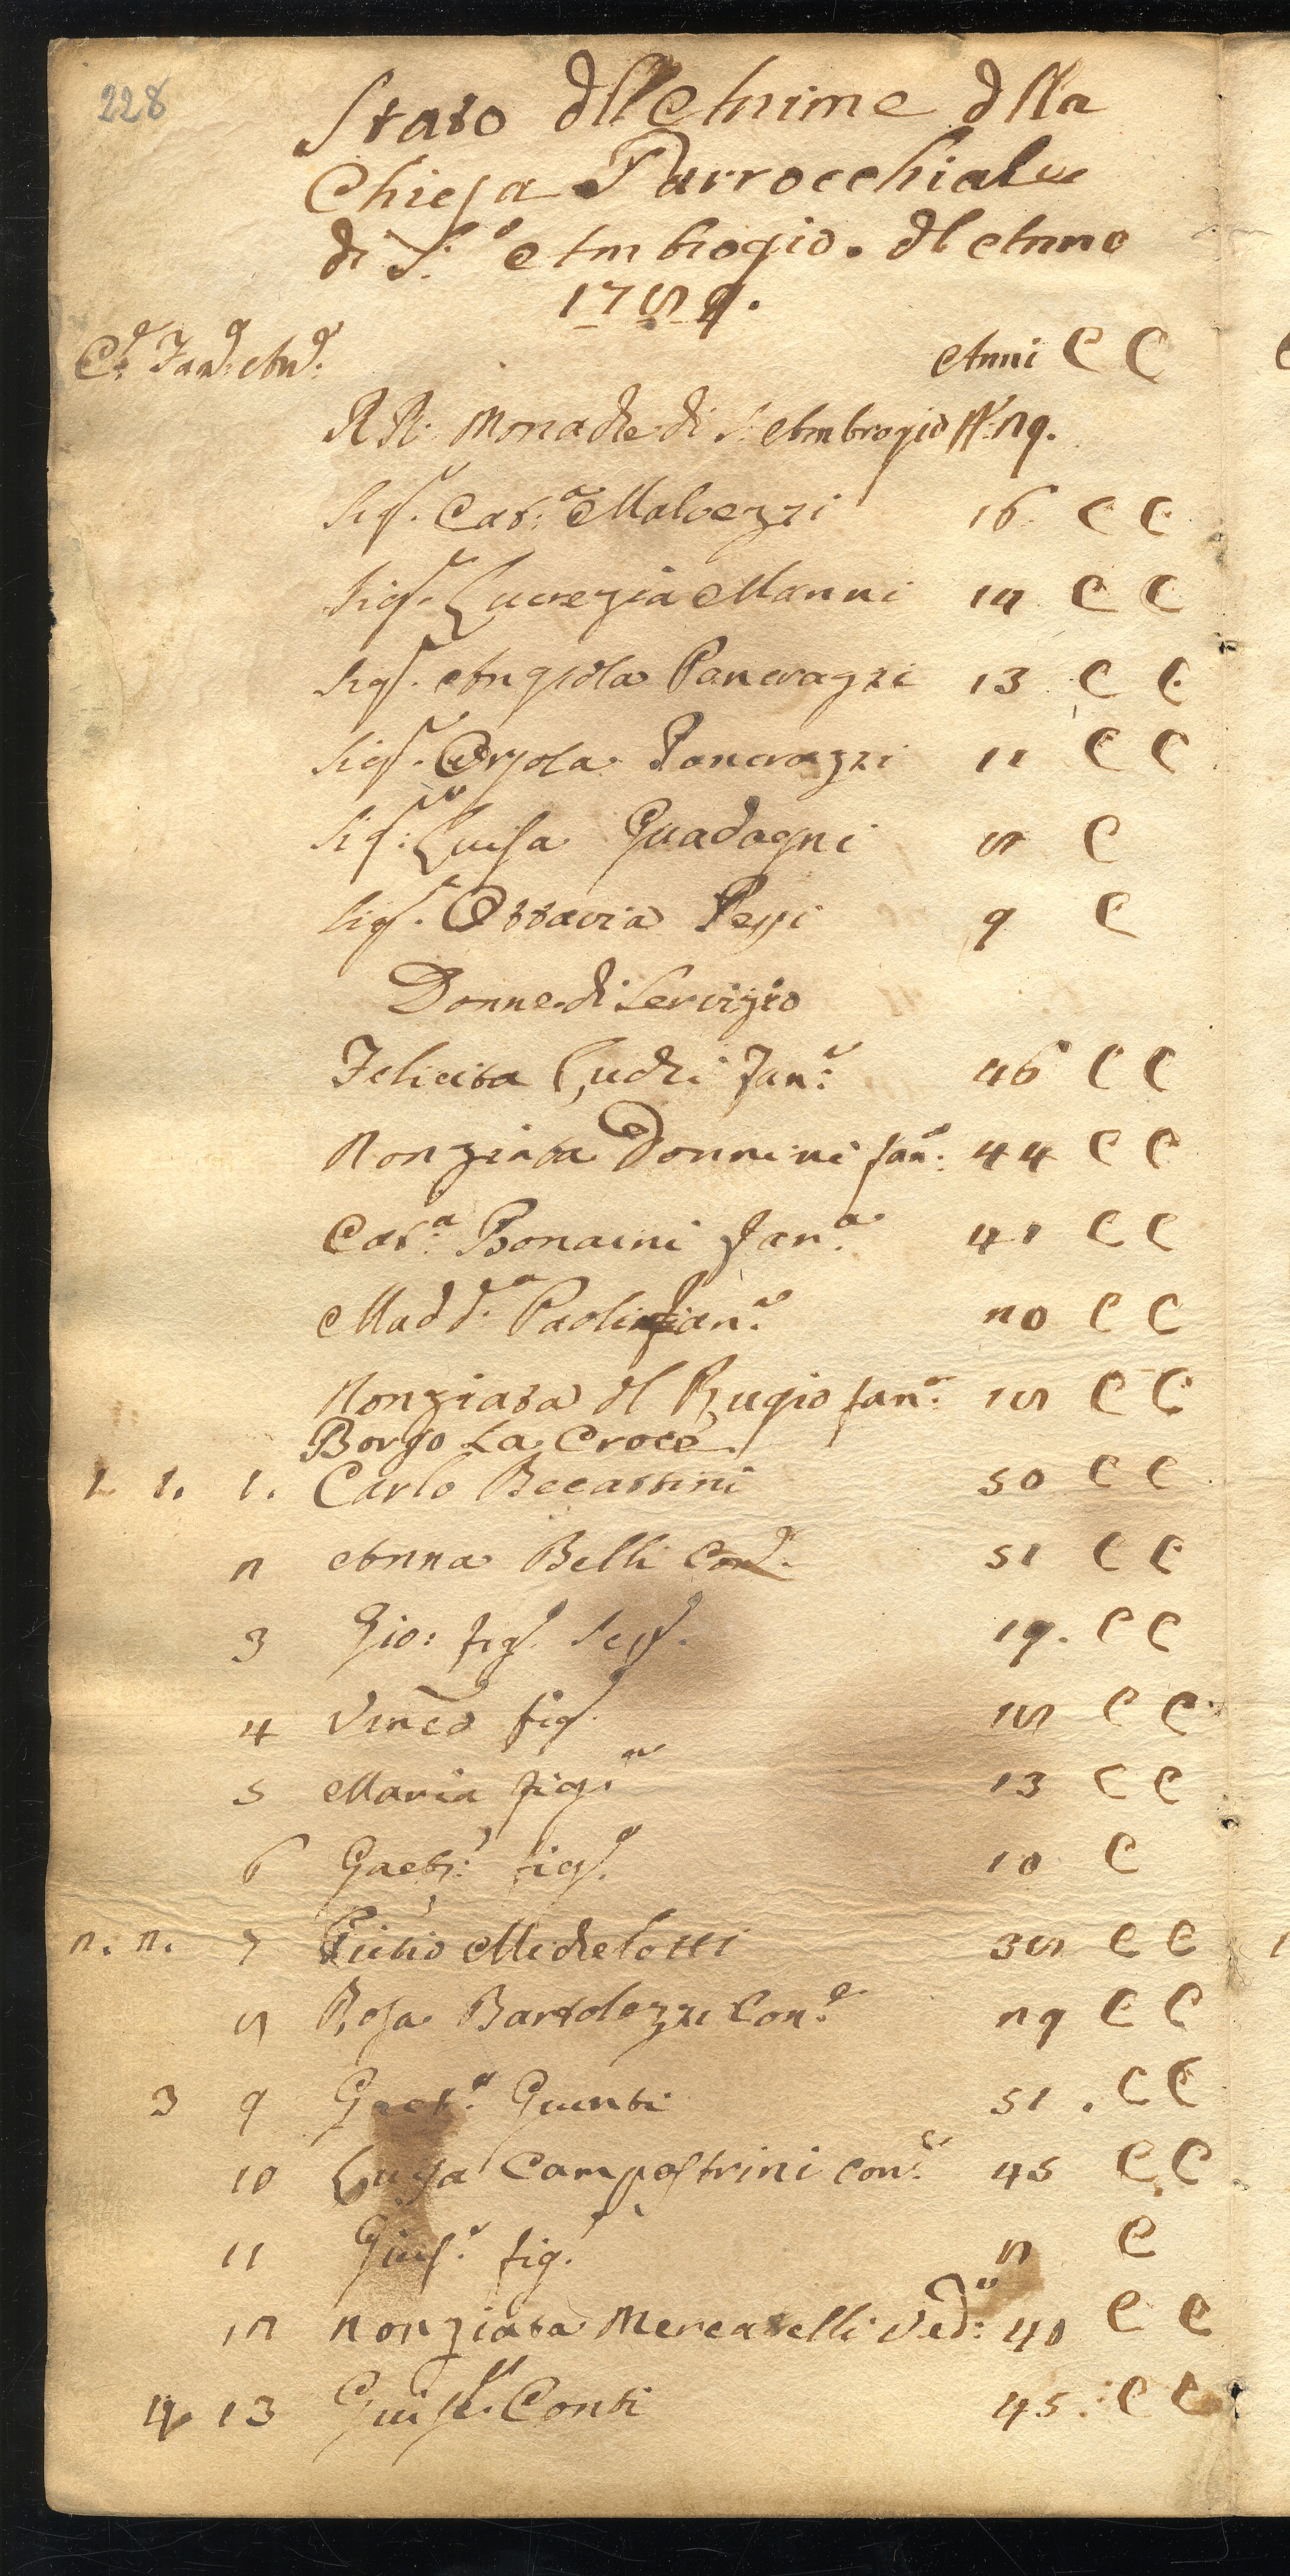 228
Stato dll'Anime dlla
Chiesa Parrocchiale
di S.º Ambrogio. dl Anno
1789.
C.e Fam.e An.e Anni C C
RR: Monache di S. Ambrogio N.º 29.
Sig.ª Cat.ª Malvezzi 16 C C
Sig.ª Lucrezia Manni 18 C C
Sig.ª Angiola Pancrazzi 13 C C
Sig.ª Orsola Pancrazzi 11 C C
Sig.ª Luisa Guadagni 8 C
Sig.ª Ottavia Pessi 9 C
Donne di Servizio
Felicita Cuchi Fan.ª 46 C C
Nonziata Donnini fan.ª 44 C C
Cat.ª Bonaini Fan.ª 41 C C
Madd.ª Paolini Fan.ª 20 C C
Nonziata dl Rugio fan.ª 18 C C
Borgo La Croce
1. 1. 1. Carlo Becattini 50 C C
2 Anna Belli Con.e 51 C C
3 Gio: fig.º 19. C C
4 Vinc.º fig.º 18 C C
5 Maria fig.ª 13 C C
6 Gaet.º fig.º 10 C
2. 2. 7 Michelotti 38 C C
8 Rosa Bartolozzi Con.e 29 C C
3 9 Gaet.º Giunti 51. C C
10 Luisa Campostrini con.e 45 C C
11 Gius.e fig.º 8 C
12 Nonziata Mercatelli Ved.ª 40 C C
4 13 Giuse.e Conti 45. C C